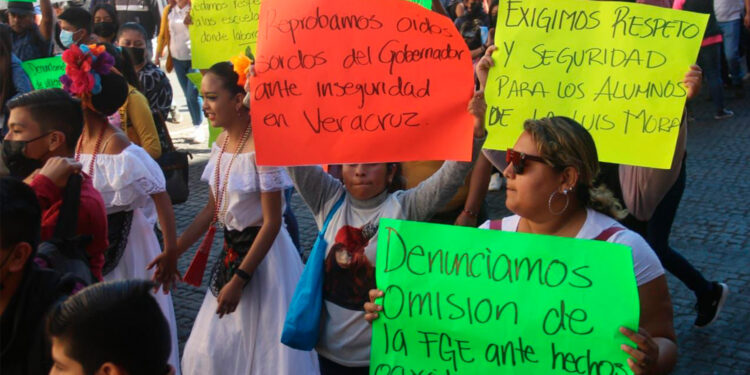 a las escuela
donde labora
Reprobamos oídos
sordos del Gobernador
ante inseguridad
en Veracruz.
Exigimos Respeto
y Seguridad
para los Alumnos
de la Luis Mora
Denunciamos
omisión de
la FGE ante hechos